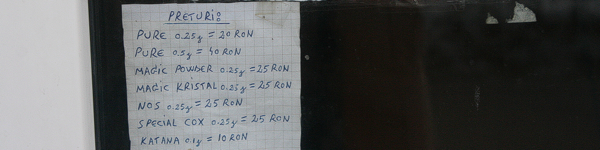 PRETURI:
PURE 0.25g = 20 RON
PURE 0.5g = 40 RON
MAGIC POWDER 0.25g = 25 RON
MAGIC KRISTAL 0.25g = 25 RON
NOS 0.25g = 25 RON
SPECIAL COX 0.25g = 25 RON
KATANA 0.1g = 10 RON